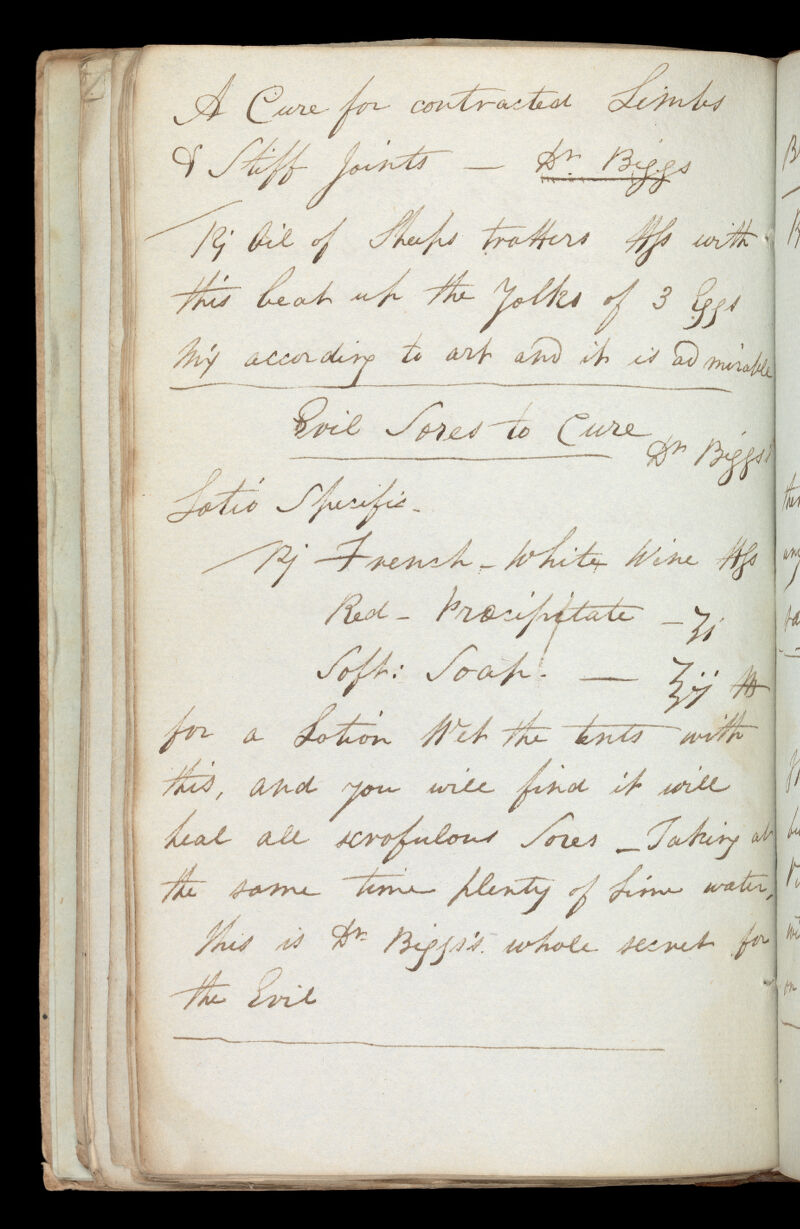 A Cure for contracted Limbs
& Stiff Joints — Dr Biggs
℞ Oil of Sheeps trotters ℔ſs with
this beat up the Yolks of 3 Eggs
Mix according to art and it is admirable
Evil Sores to Cure
Dr Biggs's
Lotio Specific -
℞ French - White Wine ℔ſs
Red - Præcipitate — ʒi
Soft: Soap. — ʒij
for a Lotion Wet the tents with
this, and you will find it will
heal all scrofulous Sores _ Taking at
the same time plenty of Lime water,
this is Dr Biggs's whole secret for
the Evil